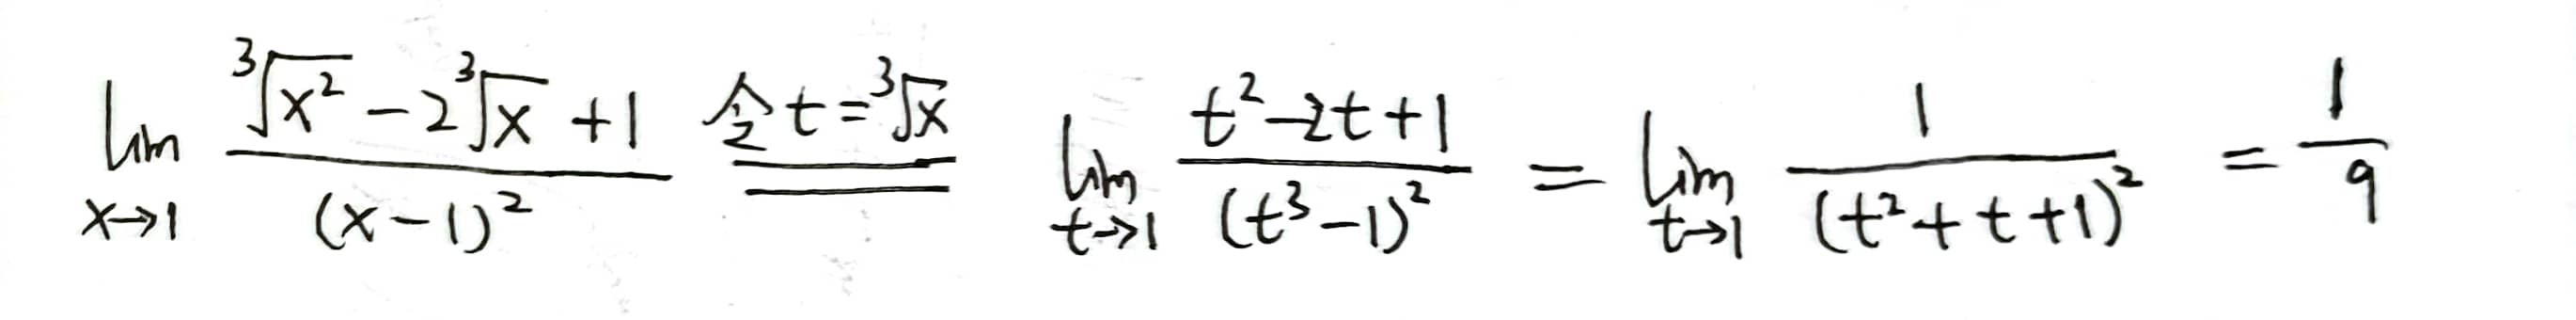 $\lim\limits_{x \to 1} \frac{\sqrt[3]{x^2} - 2\sqrt[3]{x} + 1}{(x-1)^2} \xlongequal{令 t = \sqrt[3]{x}} \lim\limits_{t \to 1} \frac{t^2 - 2t + 1}{(t^3 - 1)^2} = \lim\limits_{t \to 1} \frac{1}{(t^2 + t + 1)^2} = \frac{1}{9}$